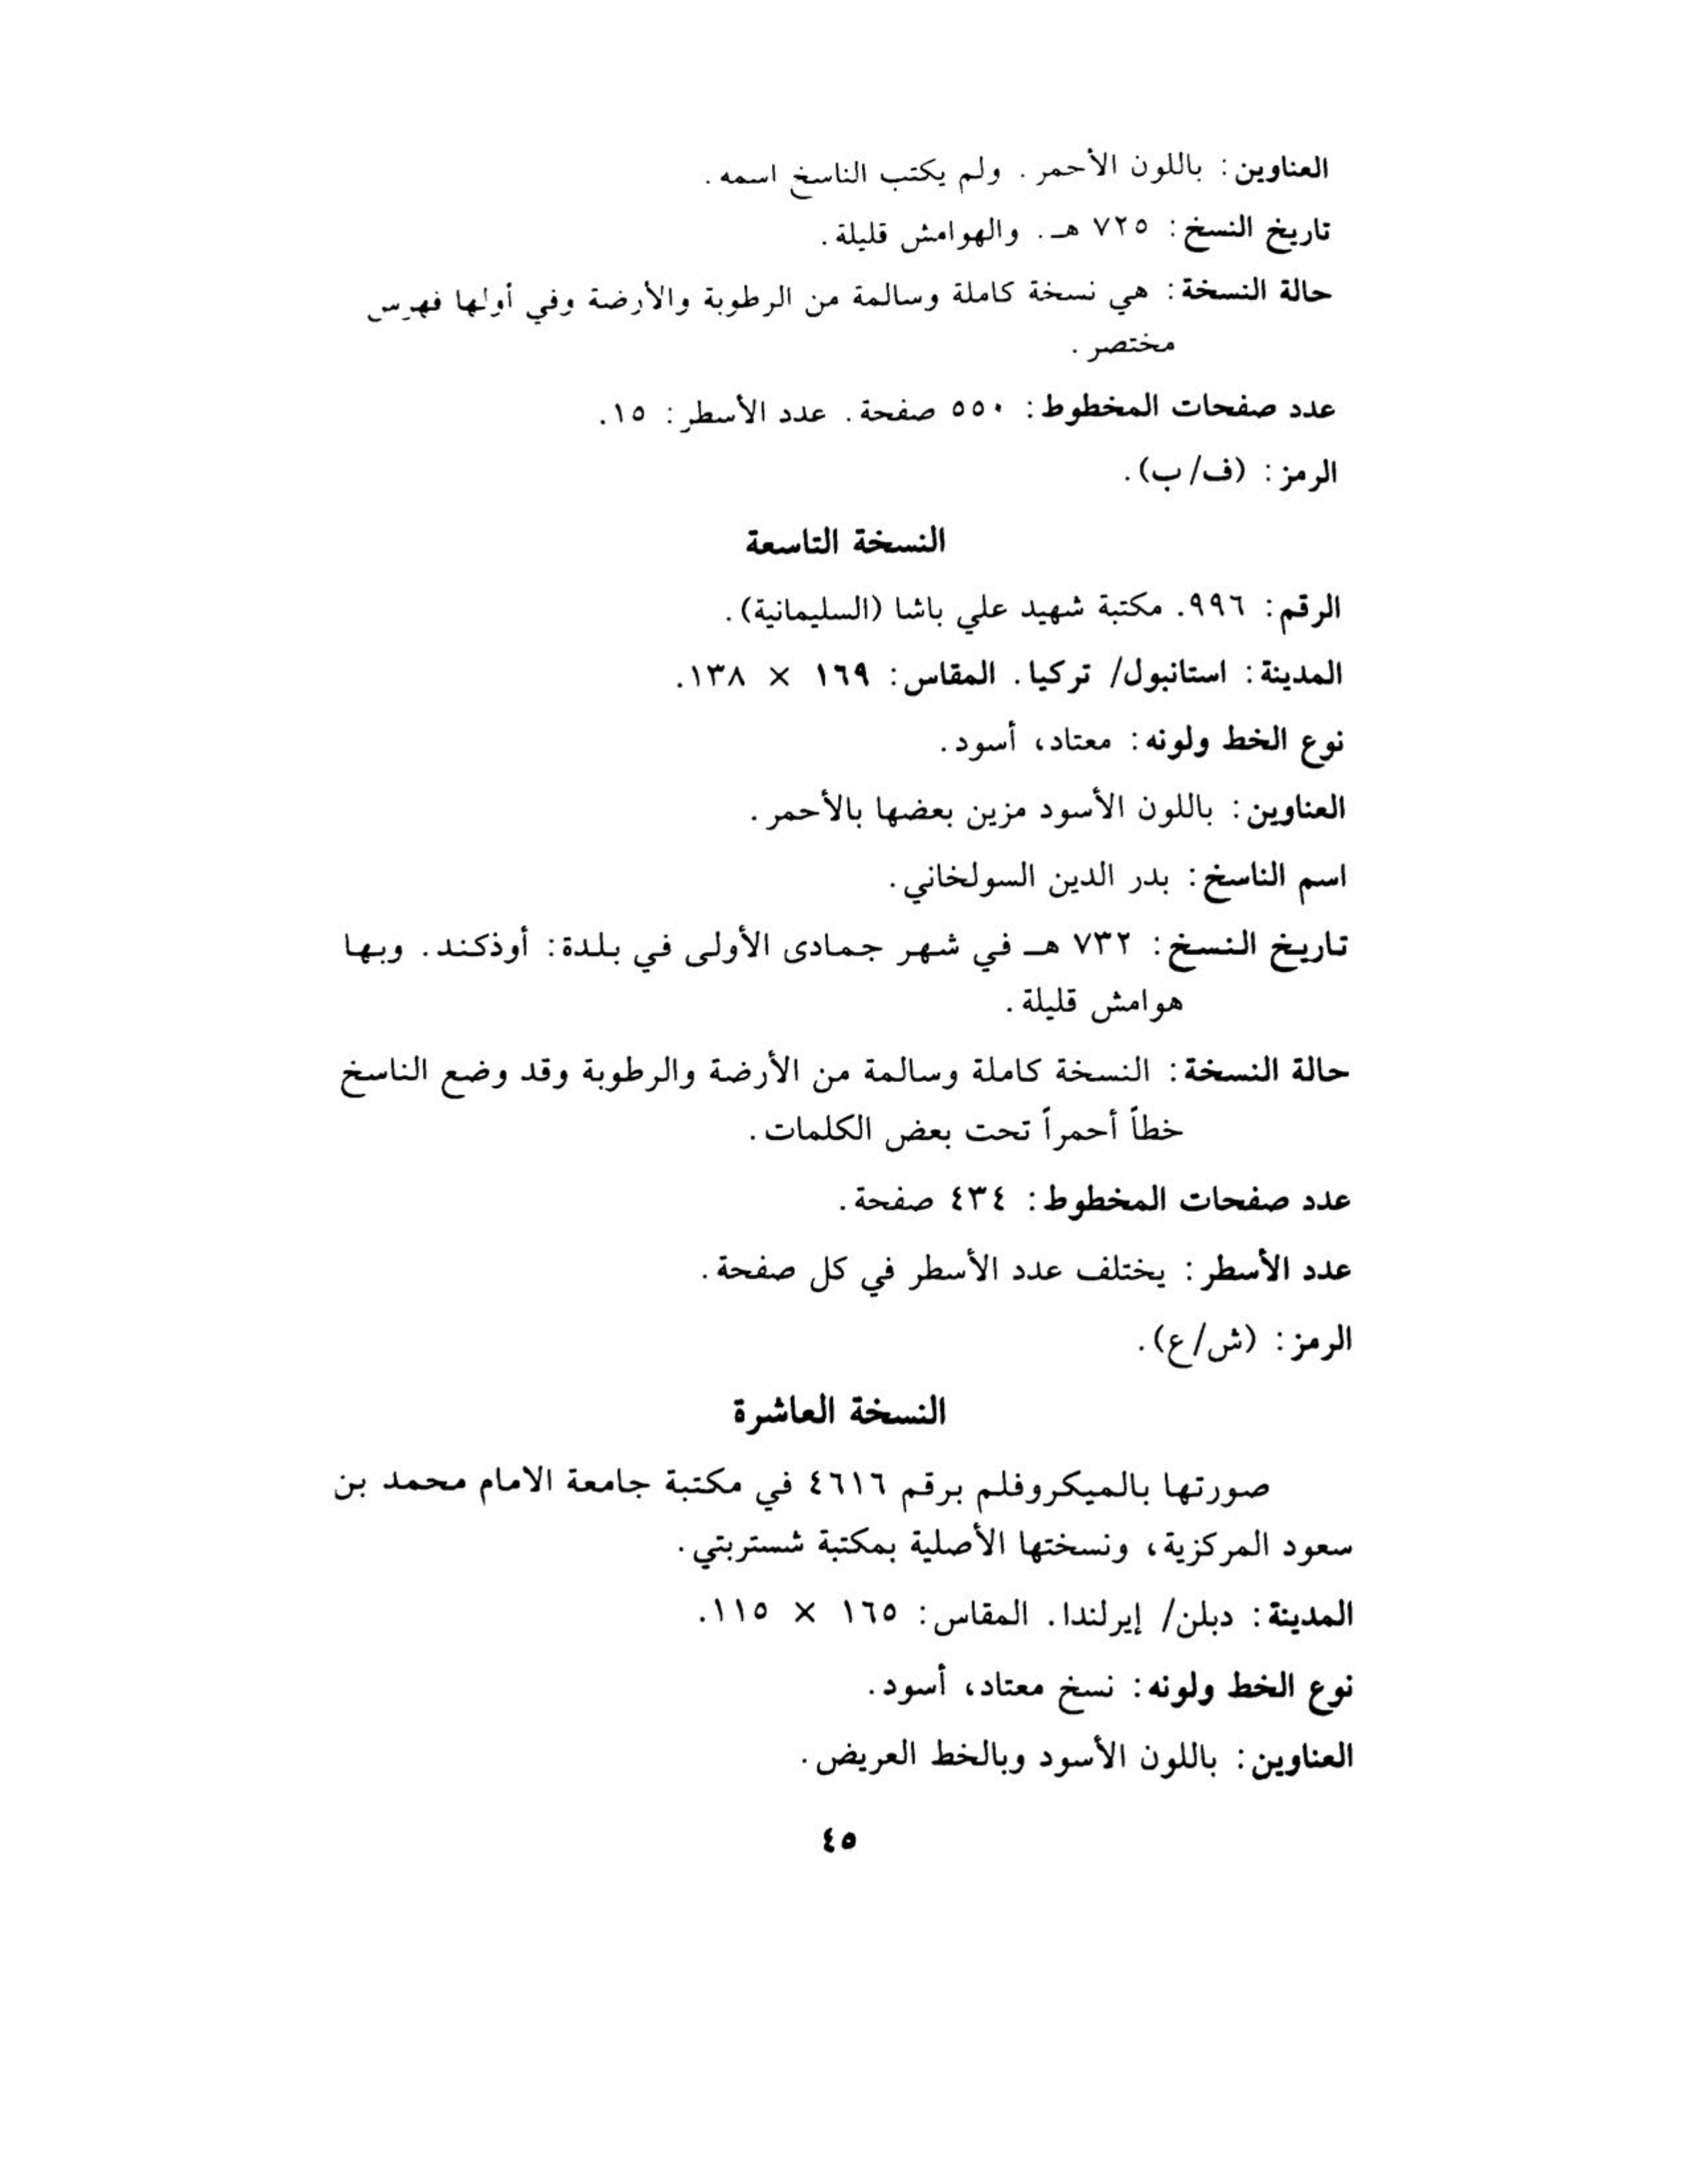 العناوين: باللون الأحمر. ولم يكتب الناسخ اسمه.
تاريخ النسخ: ٧٢٥ هـ. والهوامش قليلة.
حالة النسخة: هي نسخة كاملة وسالمة من الرطوبة والأرضة وفي أولها فهرس
مختصر.
عدد صفحات المخطوط: ٥٥٠ صفحة. عدد الأسطر: ١٥.
الرمز: (ف/ ب).
النسخة التاسعة
الرقم: ٩٩٦. مكتبة شهيد علي باشا (السليمانية).
المدينة: استانبول/ تركيا. المقاس: ١٦٩ × ١٣٨.
نوع الخط ولونه: معتاد، أسود.
العناوين: باللون الأسود مزين بعضها بالأحمر.
اسم الناسخ: بدر الدين السولخاني.
تاريخ النسخ: ٧٣٢ هـ في شهر جمادى الأولى في بلدة: أوذكند. وبها
هوامش قليلة.
حالة النسخة: النسخة كاملة وسالمة من الأرضة والرطوبة وقد وضع الناسخ
خطاً أحمراً تحت بعض الكلمات.
عدد صفحات المخطوط: ٤٣٤ صفحة.
عدد الأسطر: يختلف عدد الأسطر في كل صفحة.
الرمز: (ش/ع).
النسخة العاشرة
صورتها بالميكروفلم برقم ٤٦١٦ في مكتبة جامعة الامام محمد بن
سعود المركزية، ونسختها الأصلية بمكتبة شستربتي.
المدينة: دبلن/ إيرلندا. المقاس: ١٦٥ × ١١٥.
نوع الخط ولونه: نسخ معتاد، أسود.
العناوين: باللون الأسود وبالخط العريض.
٤٥